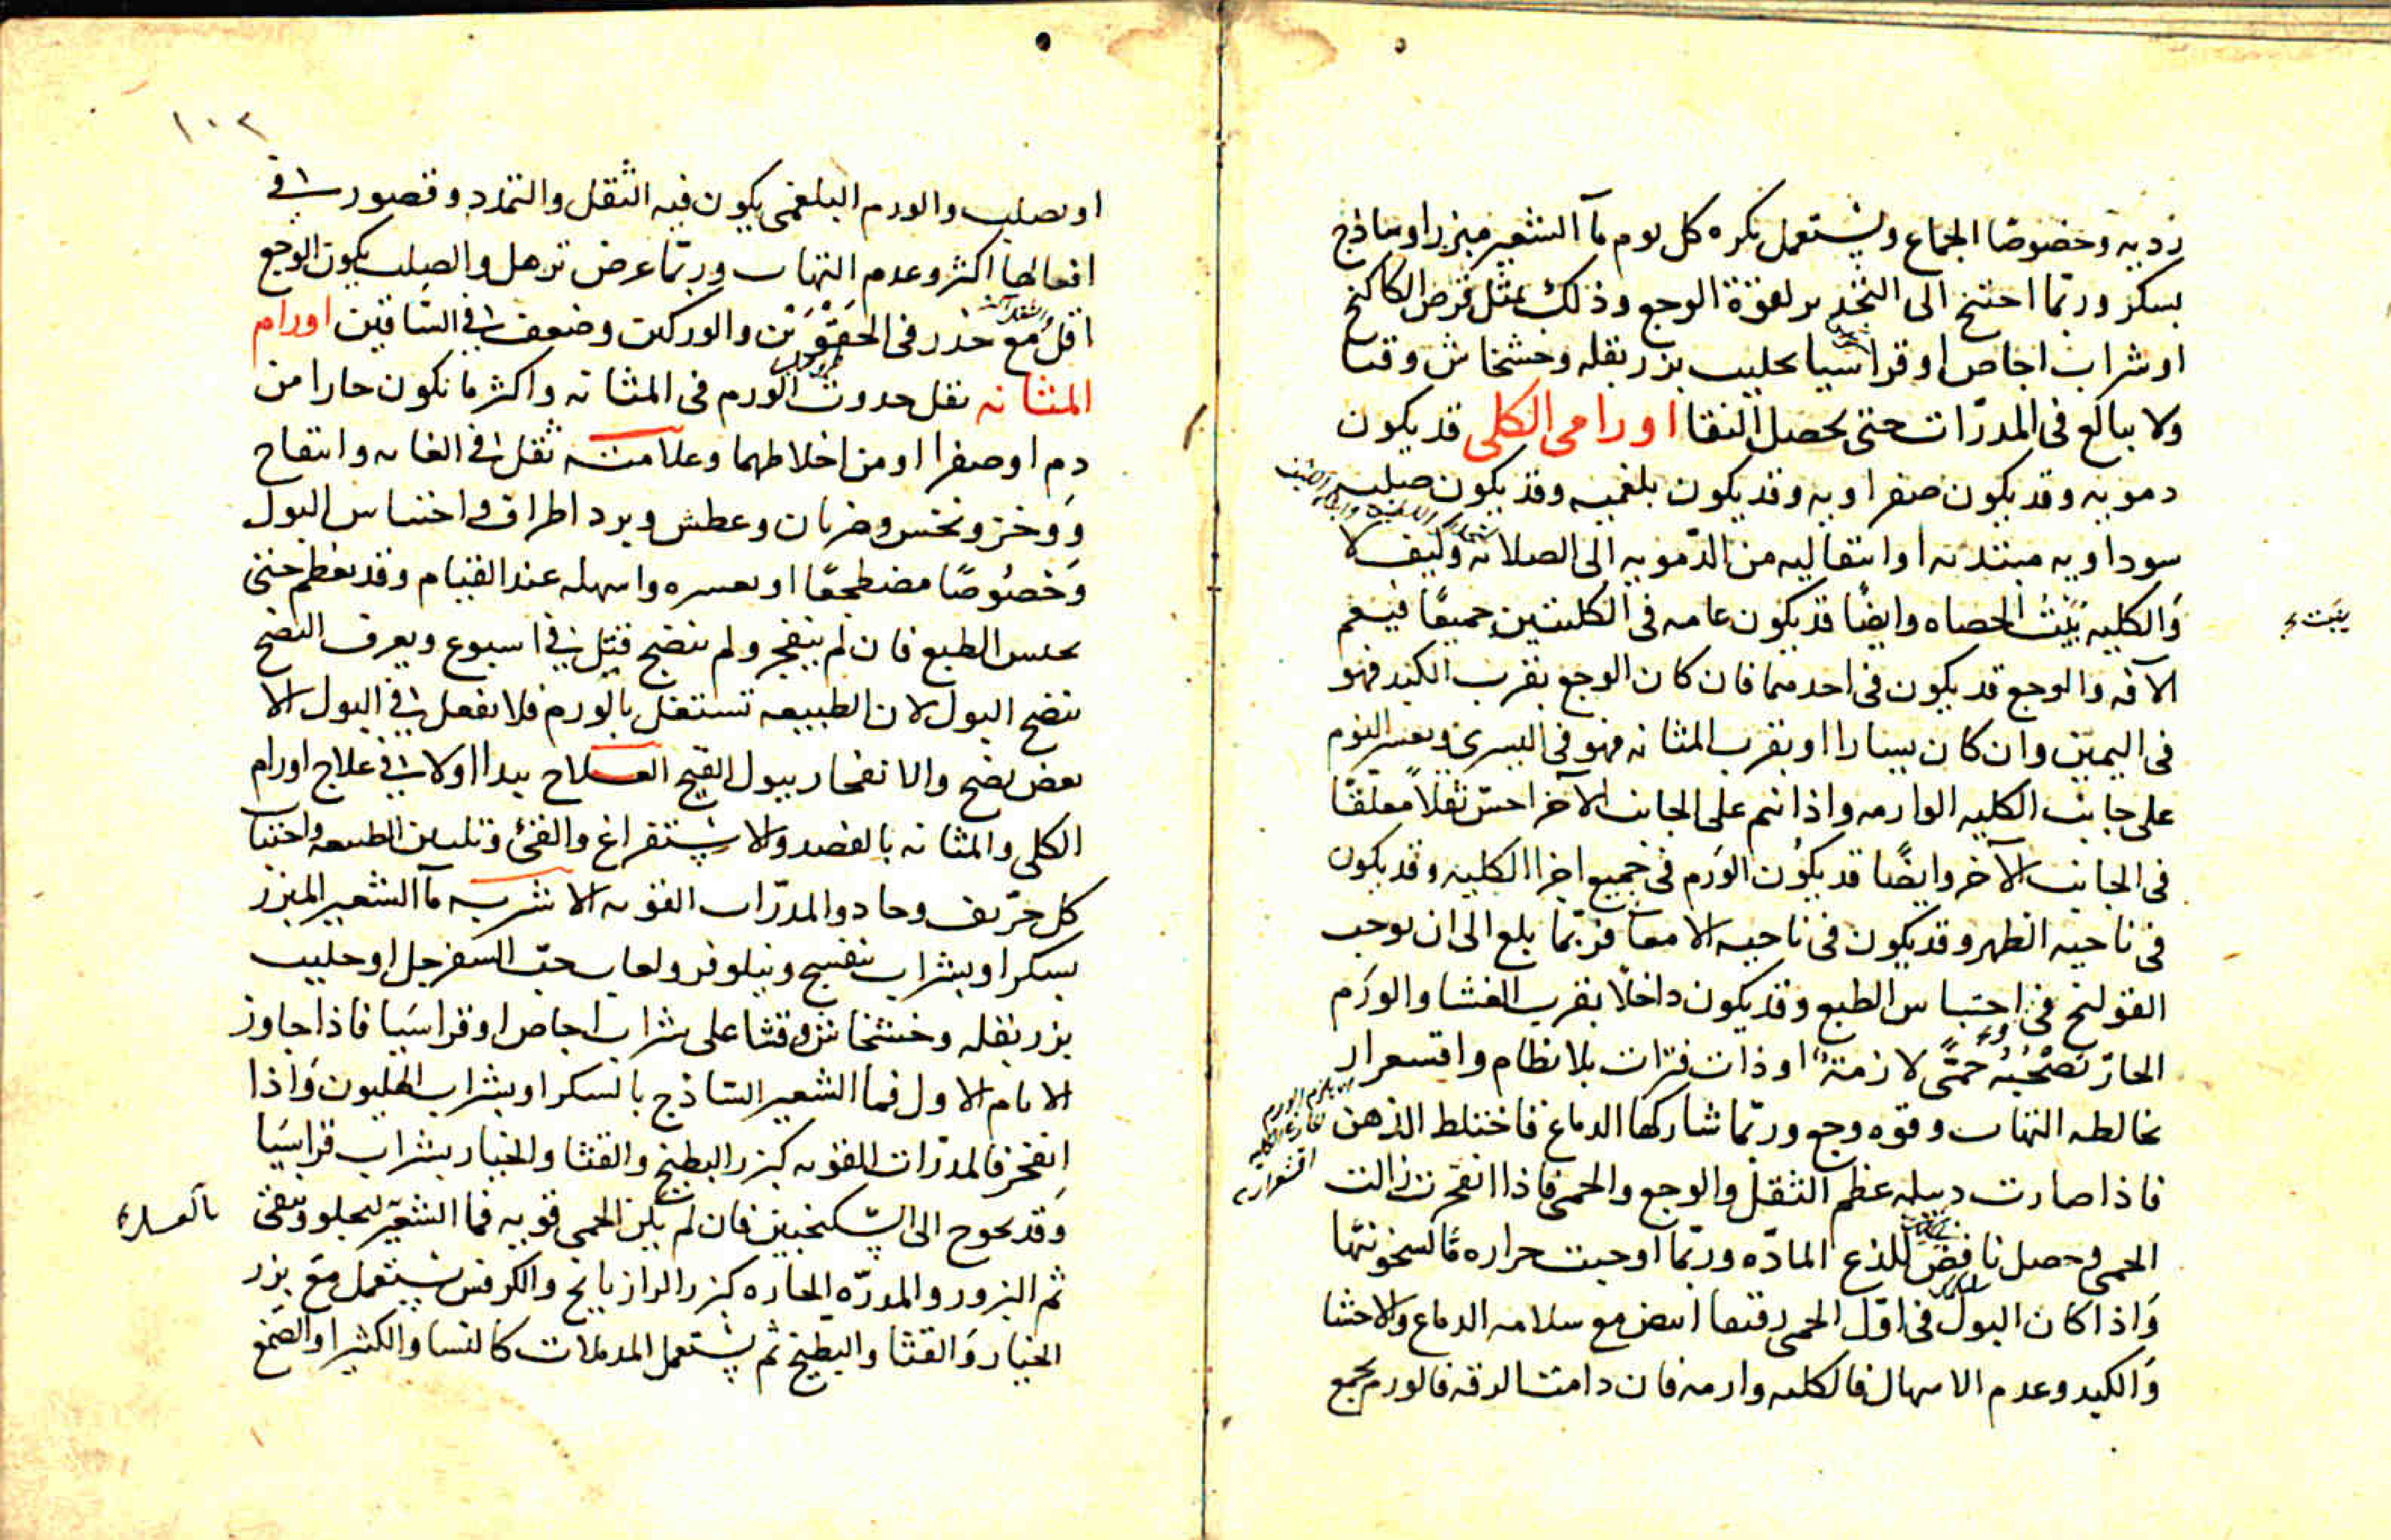 ردیه وخصوصا الجماع ویستعمل بکره کل یوم مآ الشعیر مبزرا وساذج
بسکر وربما احتیج الی التخدیر لقوة الوجع وذلک بمثل قرص الکاکنج
او شراب اجاص او قراسیا بحلیب بزر بقله وخشخاش وقثا
ولا یبالغ فی المدرّات حتی یحصل النقا اورامی الکلی قد یکون
دمویه وقد یکون صفراویه وقد یکون بلغمیه وقد یکون صلبیه
سوداویه مبتدئه او انتقالیه من الدّمویه الی الصلابه وکیف لا
وَالکلیه یَنْبُتُ الحصاه وایضًا قد یکون عامه فی الکلیتین جمیعًا فیعم
الآفه والوجع قد یکون فی احدیهما فان کان الوجع بقرب الکبد فهو
فی الیمین وان کان یسارا او بقرب المثانه فهو فی الیسری ویعسر النوم
علی جانب الکلیه الوارمه واذا نم علی الجانب الآخر احسّ ثقلاً معلقًا
فی الجانب الآخر وایضًا قد یکون الوَرم فی جمیع اجزا الکلیه وقد یکون
فی ناحیه الظهر وقد یکون فی ناحیه الامعآ فربّما بلغ الی ان یوجب
القولنج فی احتباس الطبع وقد یکون داخلاً بقرب الغشا والورَم
الحارّ تَصْحَبُهُ حُمَّی لازمةٌ او ذات فترات بلا نظام واقسعرار
نخالطه التهاب وقوه وجع وربّما شارکها الدماغ فاختلط الذهن
فاذا صارت دبیله عظم الثقل والوجع والحمی فاذا انفجرت زالت
الحمی وحصل نافض للذع المادّه وربّما اوجبت حراره مّا لسخونتها
وَاذا کان البول فی اوّل الحمی رقیقا ابیض مع سلامه الدماغ والاحشا
وَالکبد وعدم الاسهال فالکلیه وارمه فان دامت الرقه فالورم یجمع
یَنْبُت
اقشعرار
١٠٢
او یصلب والورم البلغمی یکون فیه الثقل والتمدد وقصور فی
افعالها اکثر وعدم التهاب وربّما عرض ترهل والصلب یکون الوجع
اقل مع خدر فی الحَقْوَیْن والورکین وضعف فی الساقین اورام
المثانه یقل حدوث الورم فی المثانه واکثر ما یکون حارا من
دم او صفرا او من اخلاطهما وعلامته ثقل فی العانه وانتفاخ
وَوخز ونخس وضربان وعطش وبرد اطراف واحتباس البول
وَخصُوصًا مضطجعًا او بعسره واسهله عند القیام وقد یعظم حتی
یحبس الطبع فان لم ینفجر ولم ینضج قتل فی اسبوع ویعرف النضج
بنضج البول لان الطبیعه تشتغل بالورم فلا تفعل فی البول الا
بعض نضج والانفجار ببول القیح العلاج یبدا اولا فی علاج اورام
الکلی والمثانه بالفصد والاستفراغ والقئ وتلیین الطبیعه واجتناب
کل حرّیف وحاد والمدرّات القویه الاشربه مآ الشعیر المبزر
بسکر او بشراب بنفسج ونیلوفر ولعاب حبّ السفرجل او حلیب
بزر بقله وخشخاش وقثا علی شراب اجاص او قراسیا فاذا جاوز
الایام الاول فما الشعیر الساذج بالسکر او بشراب الهلیون وَاذا
انفجر فالمدرّات القویه کبزر البطیخ والقثا والخیار بشراب قراسیا
وَقد یحوج الی السکنجبین فان لم یکن الحمی قویه فما الشعیر لیجلو وینقی
ثم البزور والمدرّه الحاره کبزر الرازیانج والکرفس یستعمل مع بزر
الخیار وَالقثا والبطیخ ثم یستعمل المدملات کالنسا والکثیرا والصمغ